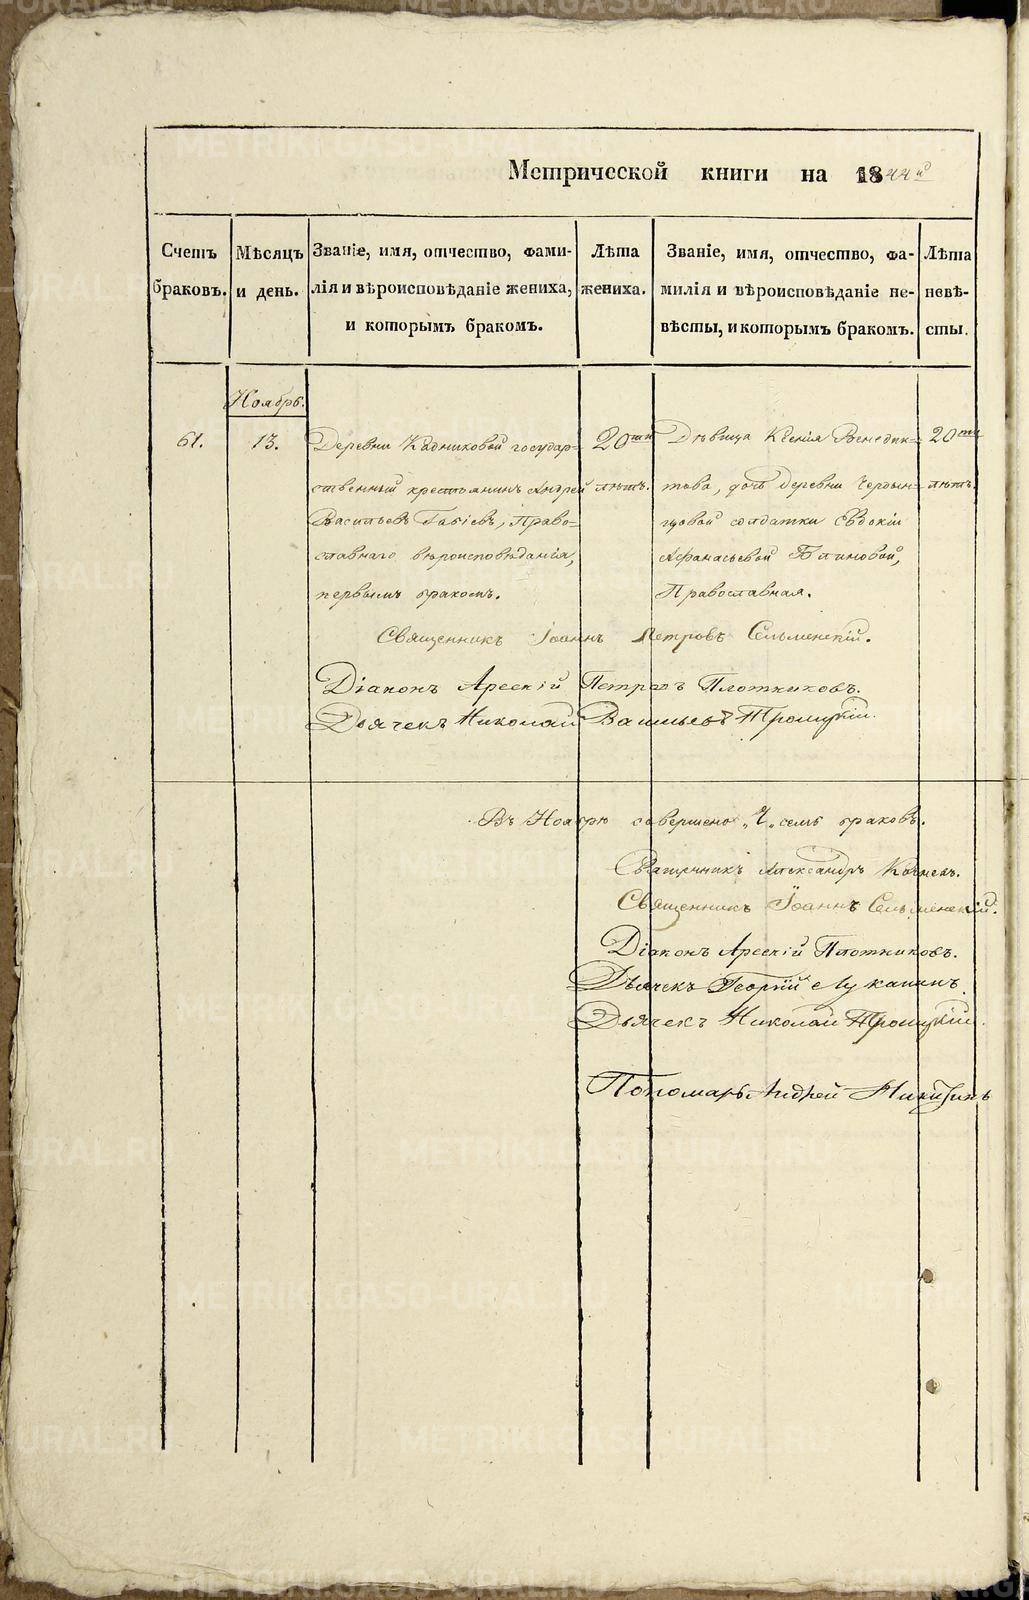 Метрической книги на 1844й
Счетъ браковъ.
Мѣсяцъ и день.
Званіе, имя, отчество, фами-
лія и вѣроисповѣданіе жениха,
и которымъ бракомъ.
Лѣта
жениха.
Званіе, имя, отчество, фа-
милія и вѣроисповѣданіе не-
вѣсты, и которымъ бракомъ.
Лѣта
невѣ-
сты.
Ноябрь.
61.
13.
Деревни Кадниковой государ-
ственный крестьянинъ Андрей
Васильевъ Габіевъ, Право-
славнаго вѣроисповѣданія,
первымъ бракомъ.
20ти
лѣтъ.
Дѣвица Ксенія Венедик-
това, дочь деревни
солдатки Евдокіи
Афанасьевой Блиновой,
Православная.
20ти
лѣтъ.
Священникъ Іоаннъ Петровъ Сельменскій.
Діаконъ Арсеній Петровъ Плотниковъ.
Дьячекъ Николай Васильевъ Троицкій.
Въ Ноябрѣ совершено „7„ семь браковъ.
Священникъ Александръ
Священникъ Іоаннъ Сельменскій.
Діаконъ Арсеній Плотниковъ.
Дьячекъ Георгій Луканинъ.
Дьячекъ Николай Троицкій.
Пономарь Андрей Никитинъ
METRIKI.GASO-URAL.RU